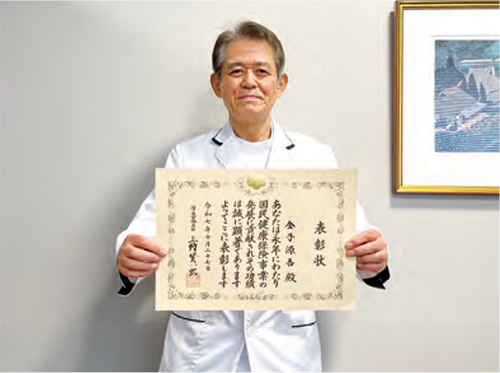 表彰状
金子源吾殿
あなたは永年にわたり
国民健康保険事業の
発展に貢献されその功績
は誠に顕著であります
よってここに表彰します
令和七年十月二十七日
厚生労働大臣